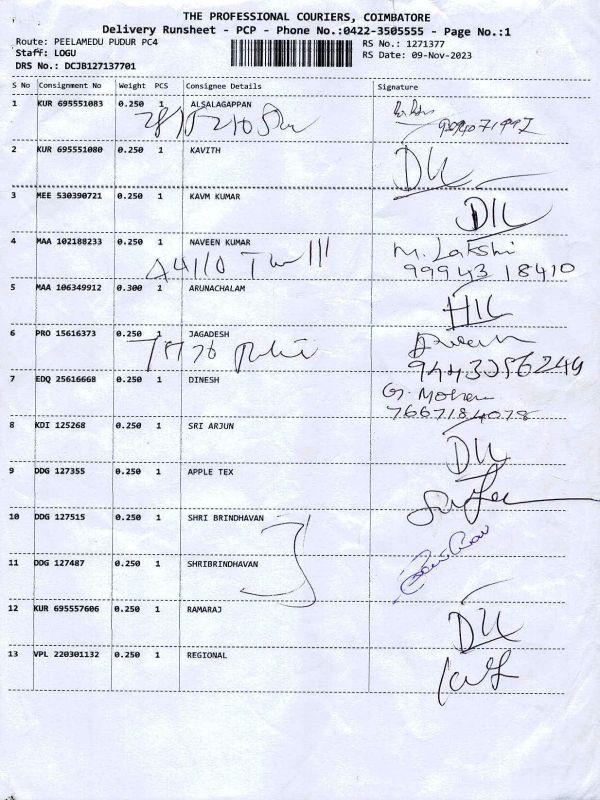 THE PROFESSIONAL COURIERS, COIMBATORE
Delivery Runsheet - PCP - Phone No.:0422-3505555 - Page No.:1
Route: PEELAMEDU PUDUR PC4
RS No.: 1271377
Staff: LOGU
RS Date: 09-Nov-2023
DRS No.: DCJB127137701
S No Consignment No Weight PCS Consignee Details Signature
1 KUR 695551083 0.250 1 ALSALAGAPPAN
2 KUR 695551080 0.250 1 KAVITH
DIL
3 MEE 530390721 0.250 1 KAVM KUMAR
DIL
4 MAA 102188233 0.250 1 NAVEEN KUMAR
M. Lakshi
99943 18410
5 MAA 106349912 0.300 1 ARUNACHALAM
HIL
6 PRO 15616373 0.250 1 JAGADESH
9443056249
7 EDQ 25616668 0.250 1 DINESH
G. Mohan
7667184078
8 KDI 125268 0.250 1 SRI ARJUN
DIL
9 DDG 127355 0.250 1 APPLE TEX
10 DDG 127515 0.250 1 SHRI BRINDHAVAN
11 DDG 127487 0.250 1 SHRIBRINDHAVAN
12 KUR 695557606 0.250 1 RAMARAJ
DIL
13 VPL 220301132 0.250 1 REGIONAL